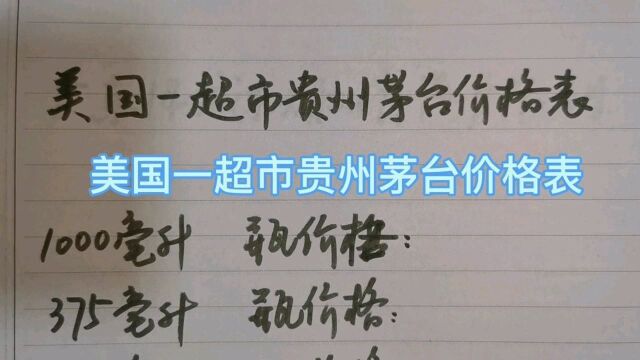 美国一超市贵州茅台价格表
美国一超市贵州茅台价格表
1000毫升 瓶价格:
375毫升 瓶价格: